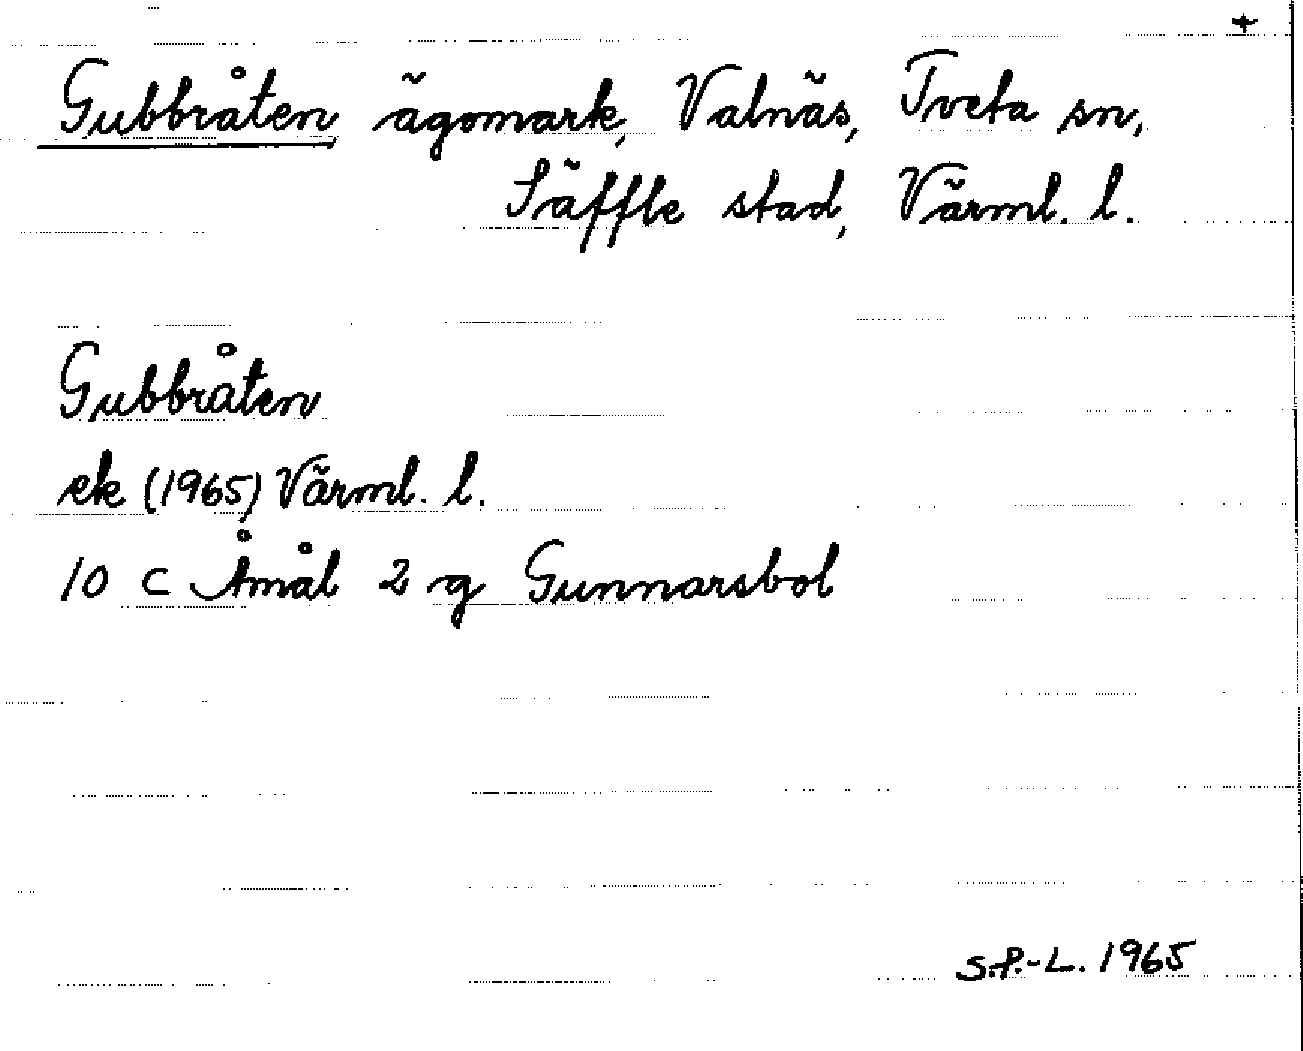 +
Gubbråten ägomark, Valnäs, Tveta sn,
Säffle stad, Värml. l.
Gubbråten
ek (1965) Värml. l.
10 c Åmål 2 g Gunnarsbol
S.P.-L. 1965